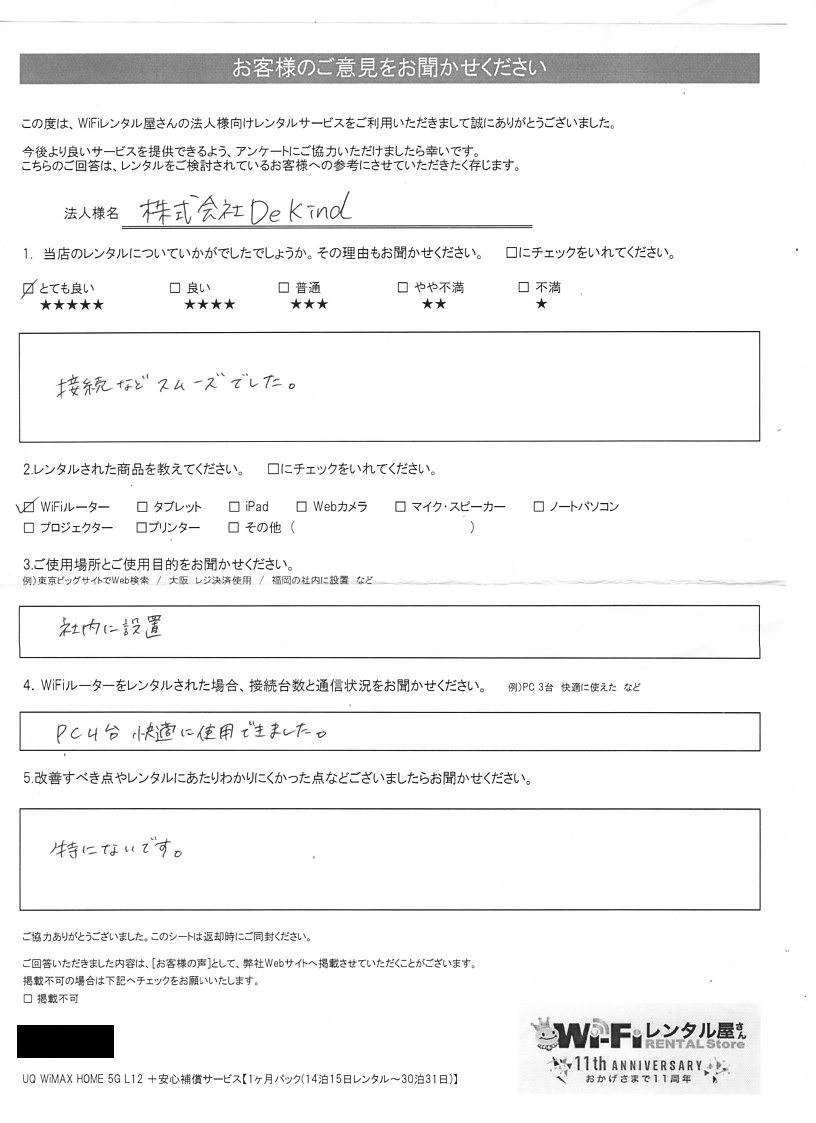 お客様のご意見をお聞かせください
この度は、WiFiレンタル屋さんの法人様向けレンタルサービスをご利用いただきまして誠にありがとうございました。
今後より良いサービスを提供できるよう、アンケートにご協力いただけましたら幸いです。
こちらのご回答は、レンタルをご検討されているお客様への参考にさせていただきたく存じます。
法人様名 株式会社De Kind
1. 当店のレンタルについていかがでしたでしょうか。その理由もお聞かせください。 □にチェックをいれてください。
☑ とても良い □ 良い □ 普通 □ やや不満 □ 不満
★★★★★ ★★★★ ★★★ ★★ ★
接続などスムーズでした。
2.レンタルされた商品を教えてください。 □にチェックをいれてください。
☑ WiFiルーター □ タブレット □ iPad □ Webカメラ □ マイク・スピーカー □ ノートパソコン
□ プロジェクター □プリンター □ その他 ( )
3.ご使用場所とご使用目的をお聞かせください。
例)東京ビッグサイトでWeb検索 / 大阪 レジ決済使用 / 福岡の社内に設置 など
社内に設置
4. WiFiルーターをレンタルされた場合、接続台数と通信状況をお聞かせください。 例)PC 3台 快適に使えた など
PC4台 快適に使用できました。
5.改善すべき点やレンタルにあたりわかりにくかった点などございましたらお聞かせください。
特にないです。
ご協力ありがとうございました。このシートは返却時にご同封ください。
ご回答いただきました内容は、[お客様の声]として、弊社Webサイトへ掲載させていただくことがございます。
掲載不可の場合は下記へチェックをお願いいたします。
□ 掲載不可
Wi-Fiレンタル屋さん
RENTAL Store
11th ANNIVERSARY
おかげさまで11周年
UQ WiMAX HOME 5G L12 +安心補償サービス【1ヶ月パック(14泊15日レンタル～30泊31日)】